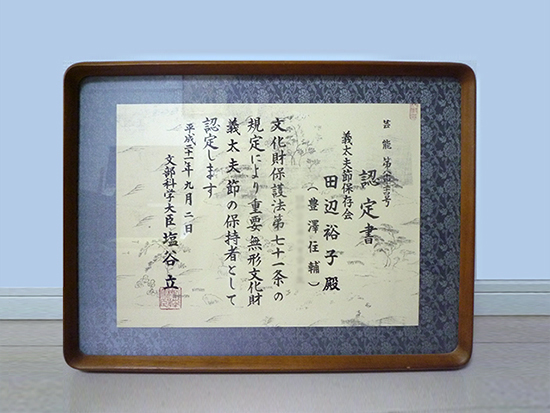 芸能第八十六号
認定書
義太夫節保存会
田辺裕子殿
(豊澤住輔)
文化財保護法第七十一条の
規定により重要無形文化財
義太夫節の保持者として
認定します
平成二十一年九月二日
文部科学大臣 塩谷立